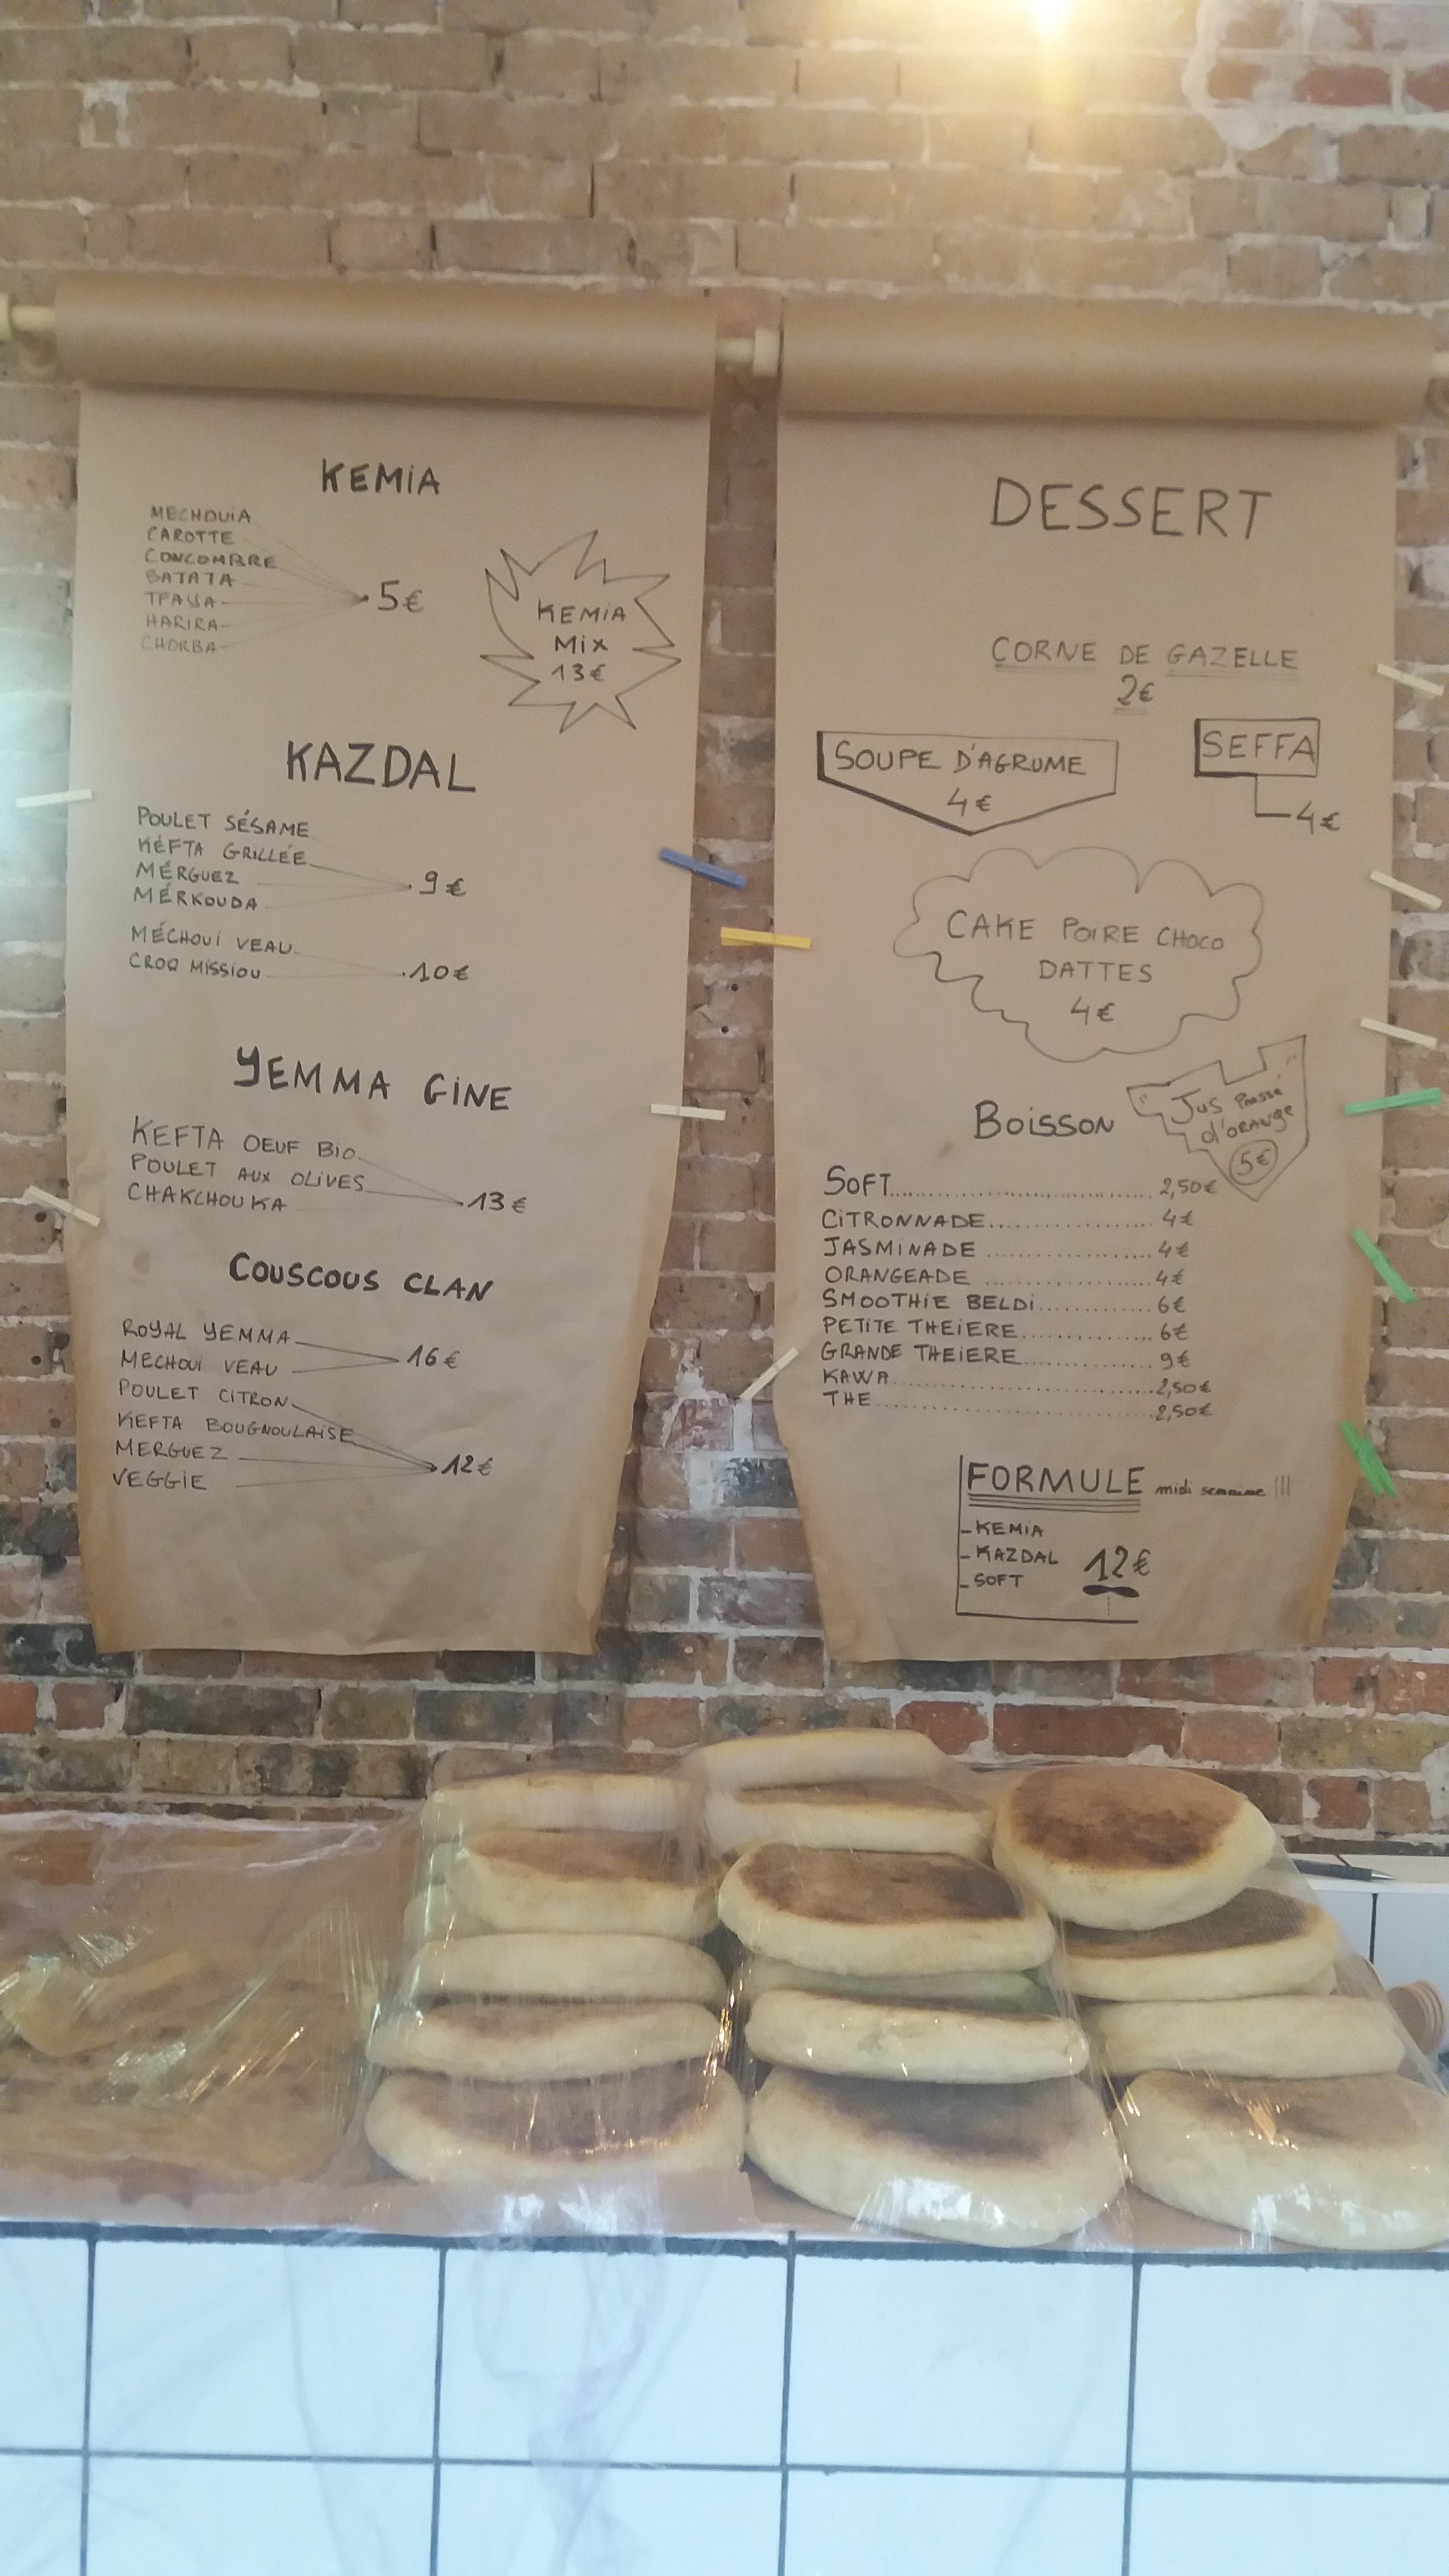 KEMIA
MECHOUIA
CAROTTE
CONCOMBRE
BATATA
HARIRA
CHORBA
5€
KEMIA
MIX
13€
KAZDAL
POULET SÉSAME
KÉFTA GRILLÉE
MÉRGUEZ
MÉRKOUDA
9€
MÉCHOUI VEAU
CROQ MISSIOU
10€
YEMMA GINE
KEFTA OEUF BIO
POULET AUX OLIVES
CHAKCHOUKA
13€
COUSCOUS CLAN
ROYAL YEMMA
MECHOUI VEAU
16€
POULET CITRON
KEFTA BOUGNOULAISE
MERGUEZ
VEGGIE
12€
DESSERT
CORNE DE GAZELLE
2€
SOUPE D'AGRUME
4€
SEFFA
4€
CAKE POIRE CHOCO
DATTES
4€
BOISSON
JUS Pressé
d'ORANGE
5€
SOFT 2,50€
CITRONNADE 4€
JASMINADE 4€
ORANGEADE 4€
SMOOTHIE BELDI 6€
PETITE THEIERE 6€
GRANDE THEIERE 9€
KAWA 2,50€
THE 2,50€
FORMULE midi semaine !!!
- KEMIA
- KAZDAL
- SOFT
12€